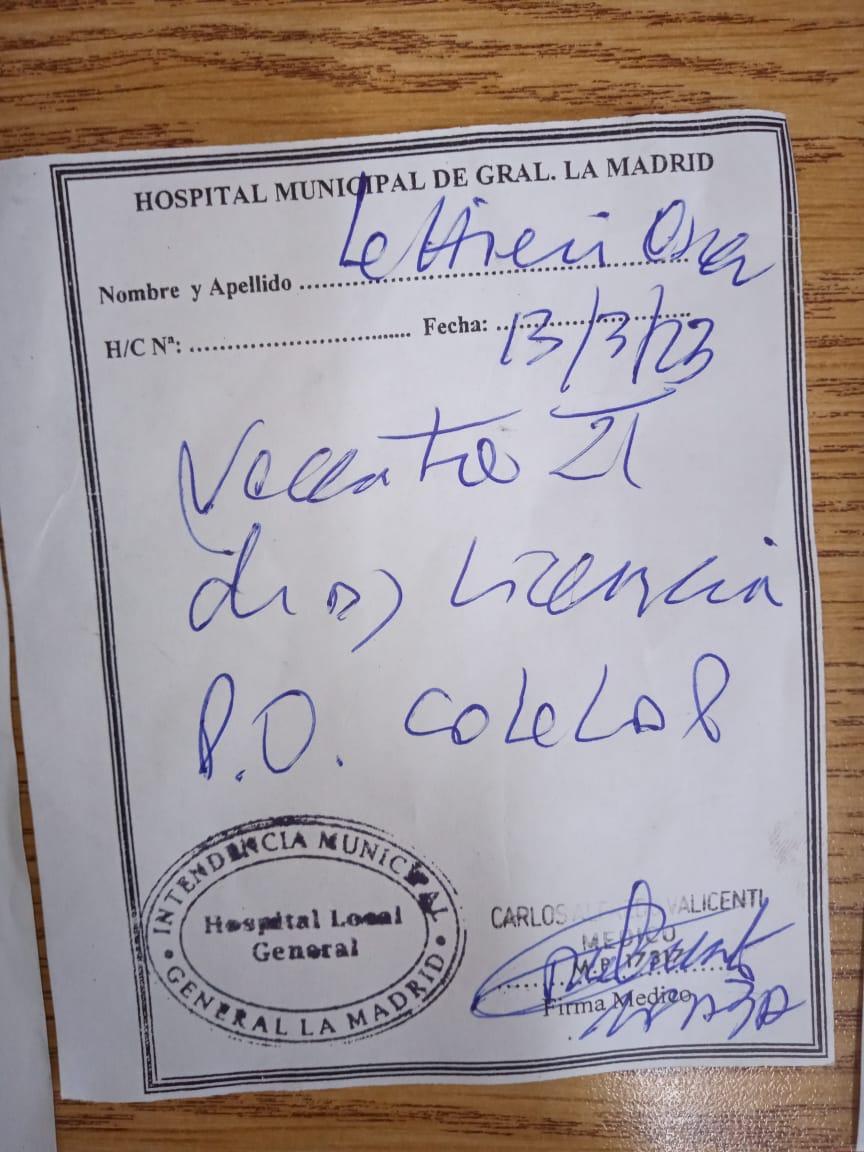 HOSPITAL MUNICIPAL DE GRAL. LA MADRID
Nombre y Apellido Lettieri Oscar
H/C Nª: Fecha: 13/3/23
21
dias Licencia
P.O. COLELAP
INTENDENCIA MUNICIPAL
Hospital Local
General
GENERAL LA MADRID
CARLOS VALICENTI
MEDICO
M.P. 17317
Firma Medico